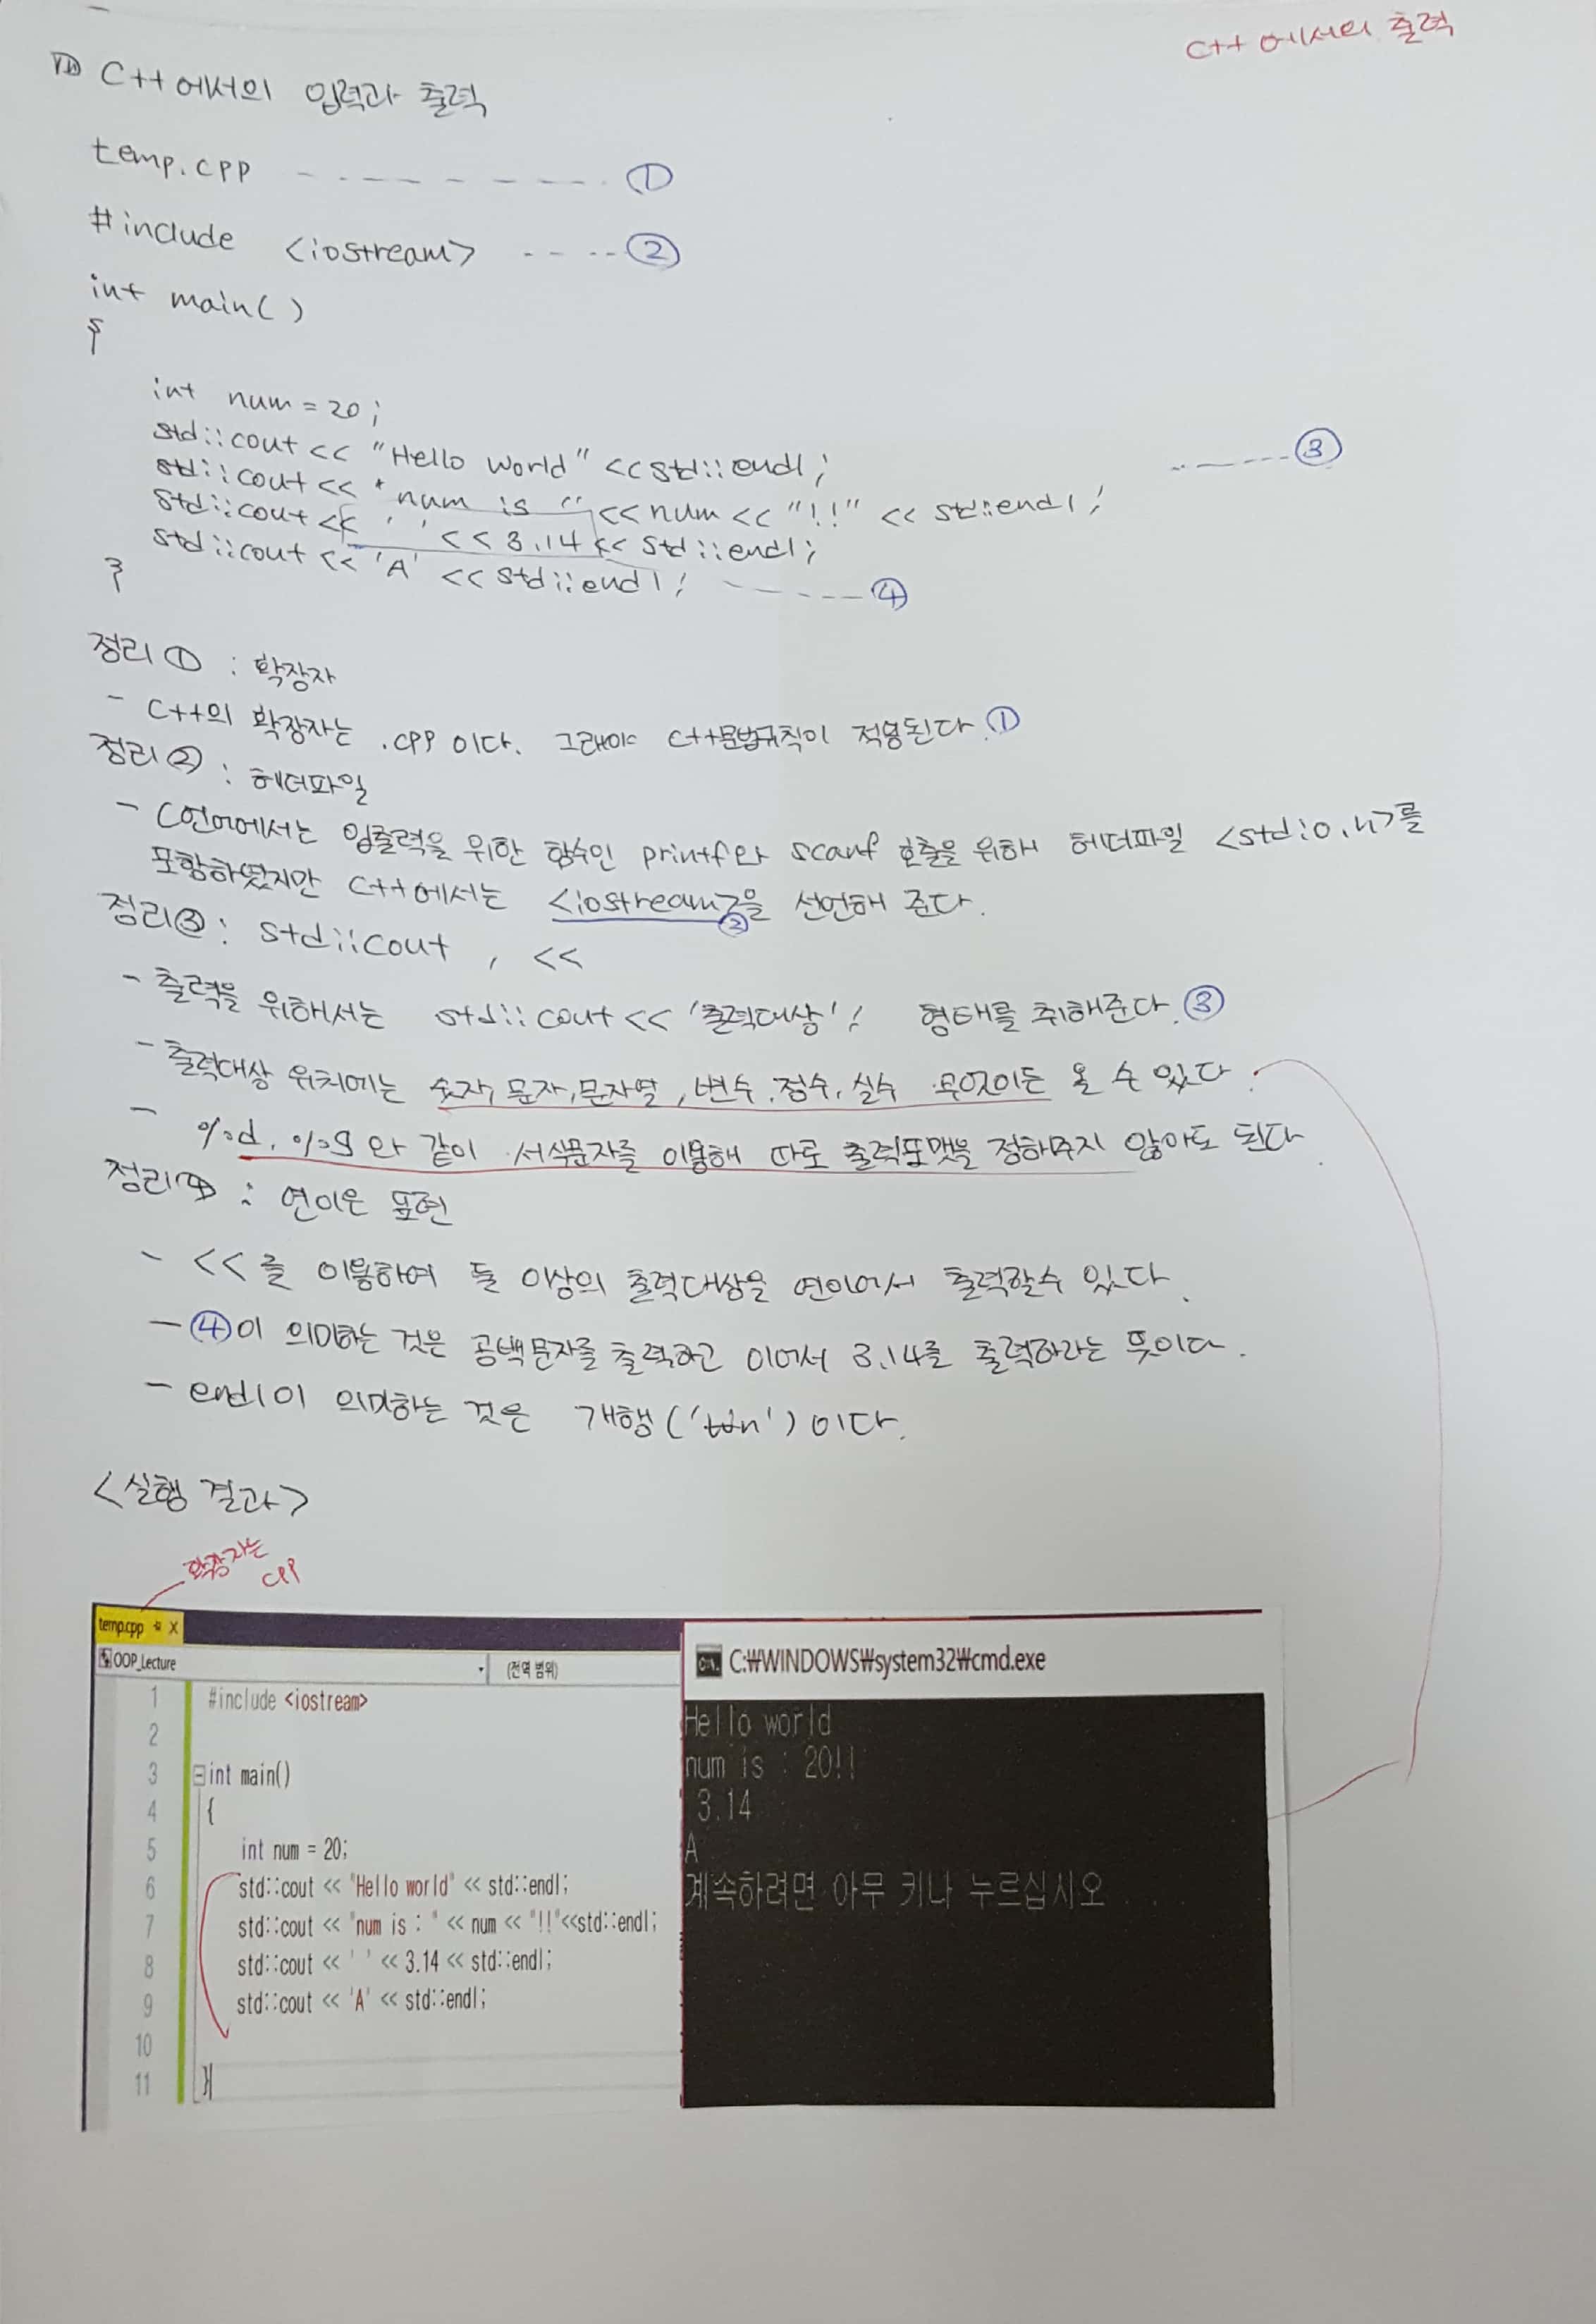 C++ 에서의 출력
C++에서의 입력과 출력
temp.cpp ①
#include <iostream> ②
int main()
{
int num = 20;
std::cout << "Hello world" << std::endl; ③
std::cout << "num is " << num << "!!" << std::endl;
std::cout << ' ' << 3.14 << std::endl;
std::cout << 'A' << std::endl; ④
}
정리① : 확장자
- C++의 확장자는 .cpp 이다. 그래야 C++문법규칙이 적용된다. ①
정리② : 헤더파일
- C언어에서는 입출력을 위한 함수인 printf와 scanf 호출을 위해 헤더파일 <stdio.h>를
포함하였지만 C++에서는 <iostream>을 선언해 준다. ②
정리③ : std::cout , <<
- 출력을 위해서는 std::cout << '출력대상'; 형태를 취해준다. ③
- 출력대상 위치에는 숫자, 문자, 문자열, 변수, 정수, 실수 무엇이든 올 수 있다.
- %d, %s 와 같이 서식문자를 이용해 따로 출력포맷을 정해주지 않아도 된다.
정리④ : 연이은 표현
- << 를 이용하여 둘 이상의 출력대상을 연이어서 출력할수 있다.
- ④이 의미하는 것은 공백문자를 출력하고 이어서 3.14를 출력하라는 뜻이다.
- endl이 의미하는 것은 개행('₩n')이다.
<실행 결과>
확장자는
cpp
temp.cpp X
OOP_Lecture (전역 범위)
1 #include <iostream>
2
3 int main()
4 {
5 int num = 20;
6 std::cout << "Hello world" << std::endl;
7 std::cout << "num is : " << num << "!!"<<std::endl;
8 std::cout << ' ' << 3.14 << std::endl;
9 std::cout << 'A' << std::endl;
10
11 }
C:₩WINDOWS₩system32₩cmd.exe
Hello world
num is : 20!!
3.14
A
계속하려면 아무 키나 누르십시오